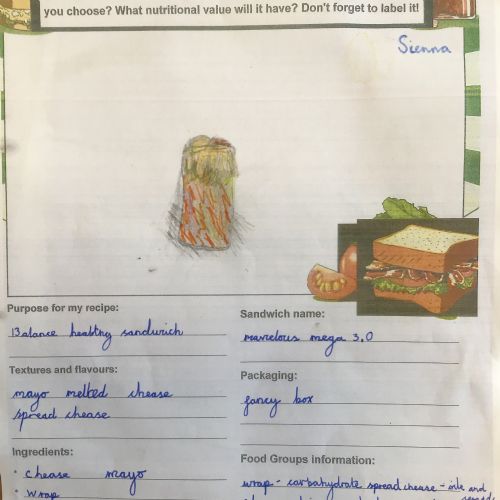 you choose? What nutritional value will it have? Don't forget to label it!
Sienna
Purpose for my recipe:
Balance healthy sandwich
Sandwich name:
marvelous mega 3.0
Textures and flavours:
mayo melted chease
spread chease
Packaging:
fancy box
Ingredients:
• chease mayo
• wrap
Food Groups information:
wrap - carbahydrate spread chease - oils and